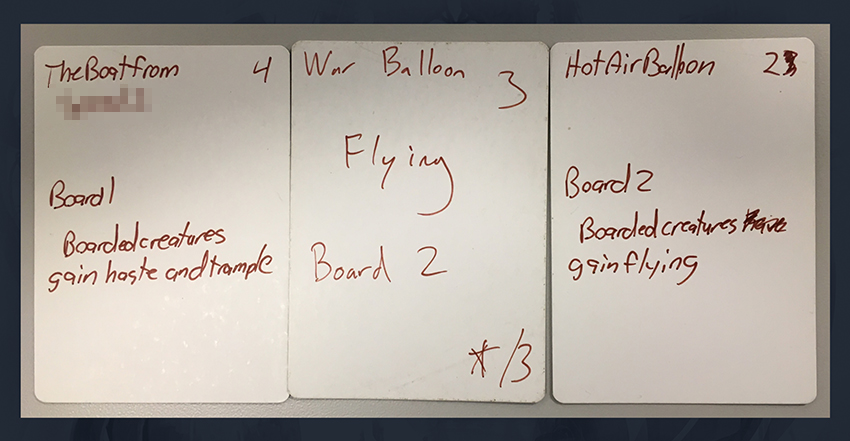 The Boat from
4
Board 1
Boarded creatures
gain haste and trample
War Balloon
3
Flying
Board 2
*/3
Hot Air Balloon
2
Board 2
Boarded creatures
gain flying